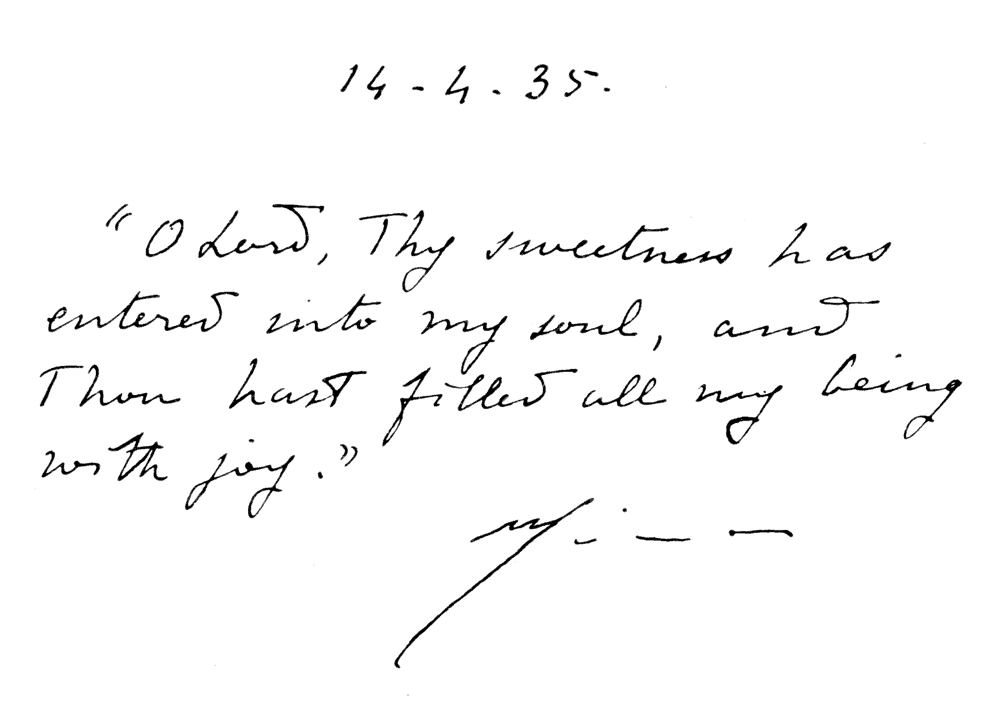 14-4.35.
"O Lord, Thy sweetness has
entered into my soul, and
Thou hast filled all my being
with joy."